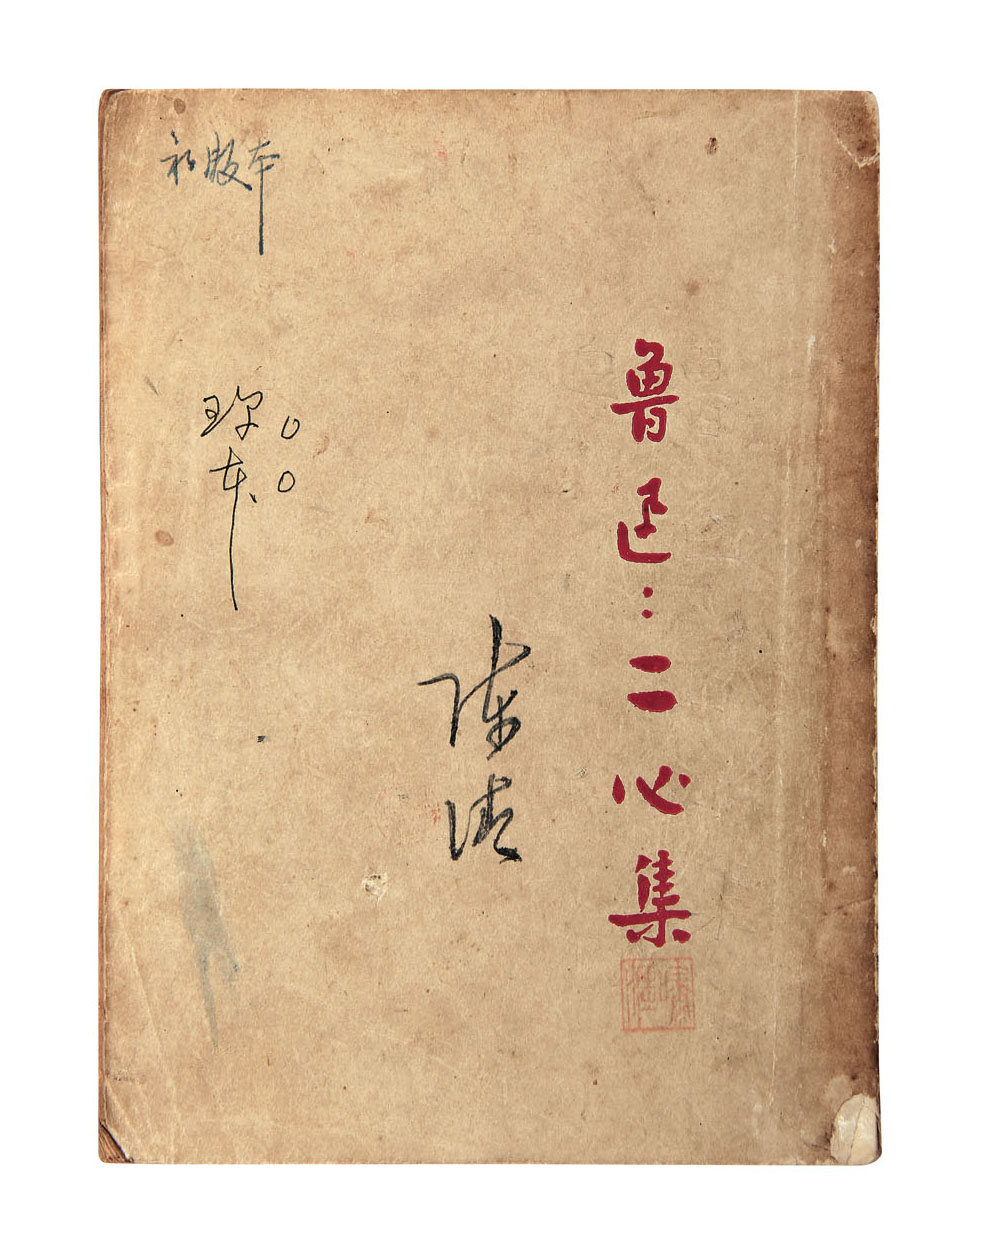 鲁迅：二心集
陈清
初版本
珍本